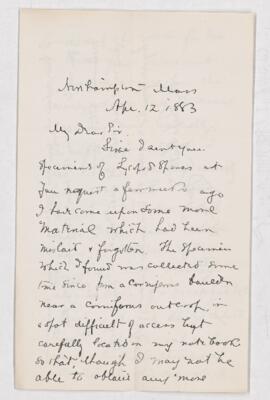 Northampton Mass
Apr. 12 1883
My Dear Sir.
Since I sent you
specimens of Lycop'd Spores at
your request a few weeks ago
I have come upon some more
material which had been
mislaid & forgotten. The specimen
which I found was collected some
time since from a Corniferous boulder
near a corniferous outcrop, in
a spot difficult of access but
carefully located in my note book
so that though I may not be
able to obtain any more